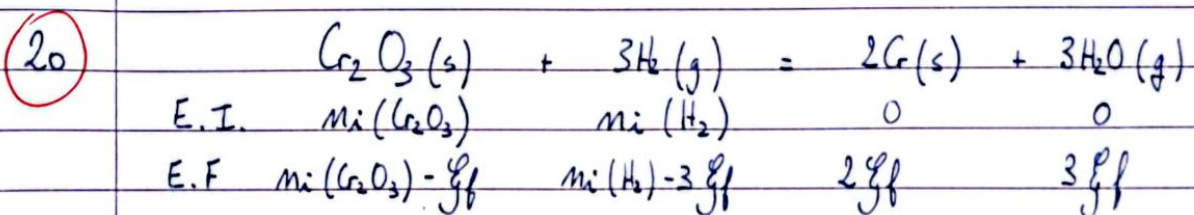 20 Cr₂O₃(s) + 3H₂(g) = 2Cr(s) + 3H₂O(g)
E.I. ni(Cr₂O₃) ni(H₂) 0 0
E.F ni(Cr₂O₃)-ξf ni(H₂)-3ξf 2ξf 3ξf